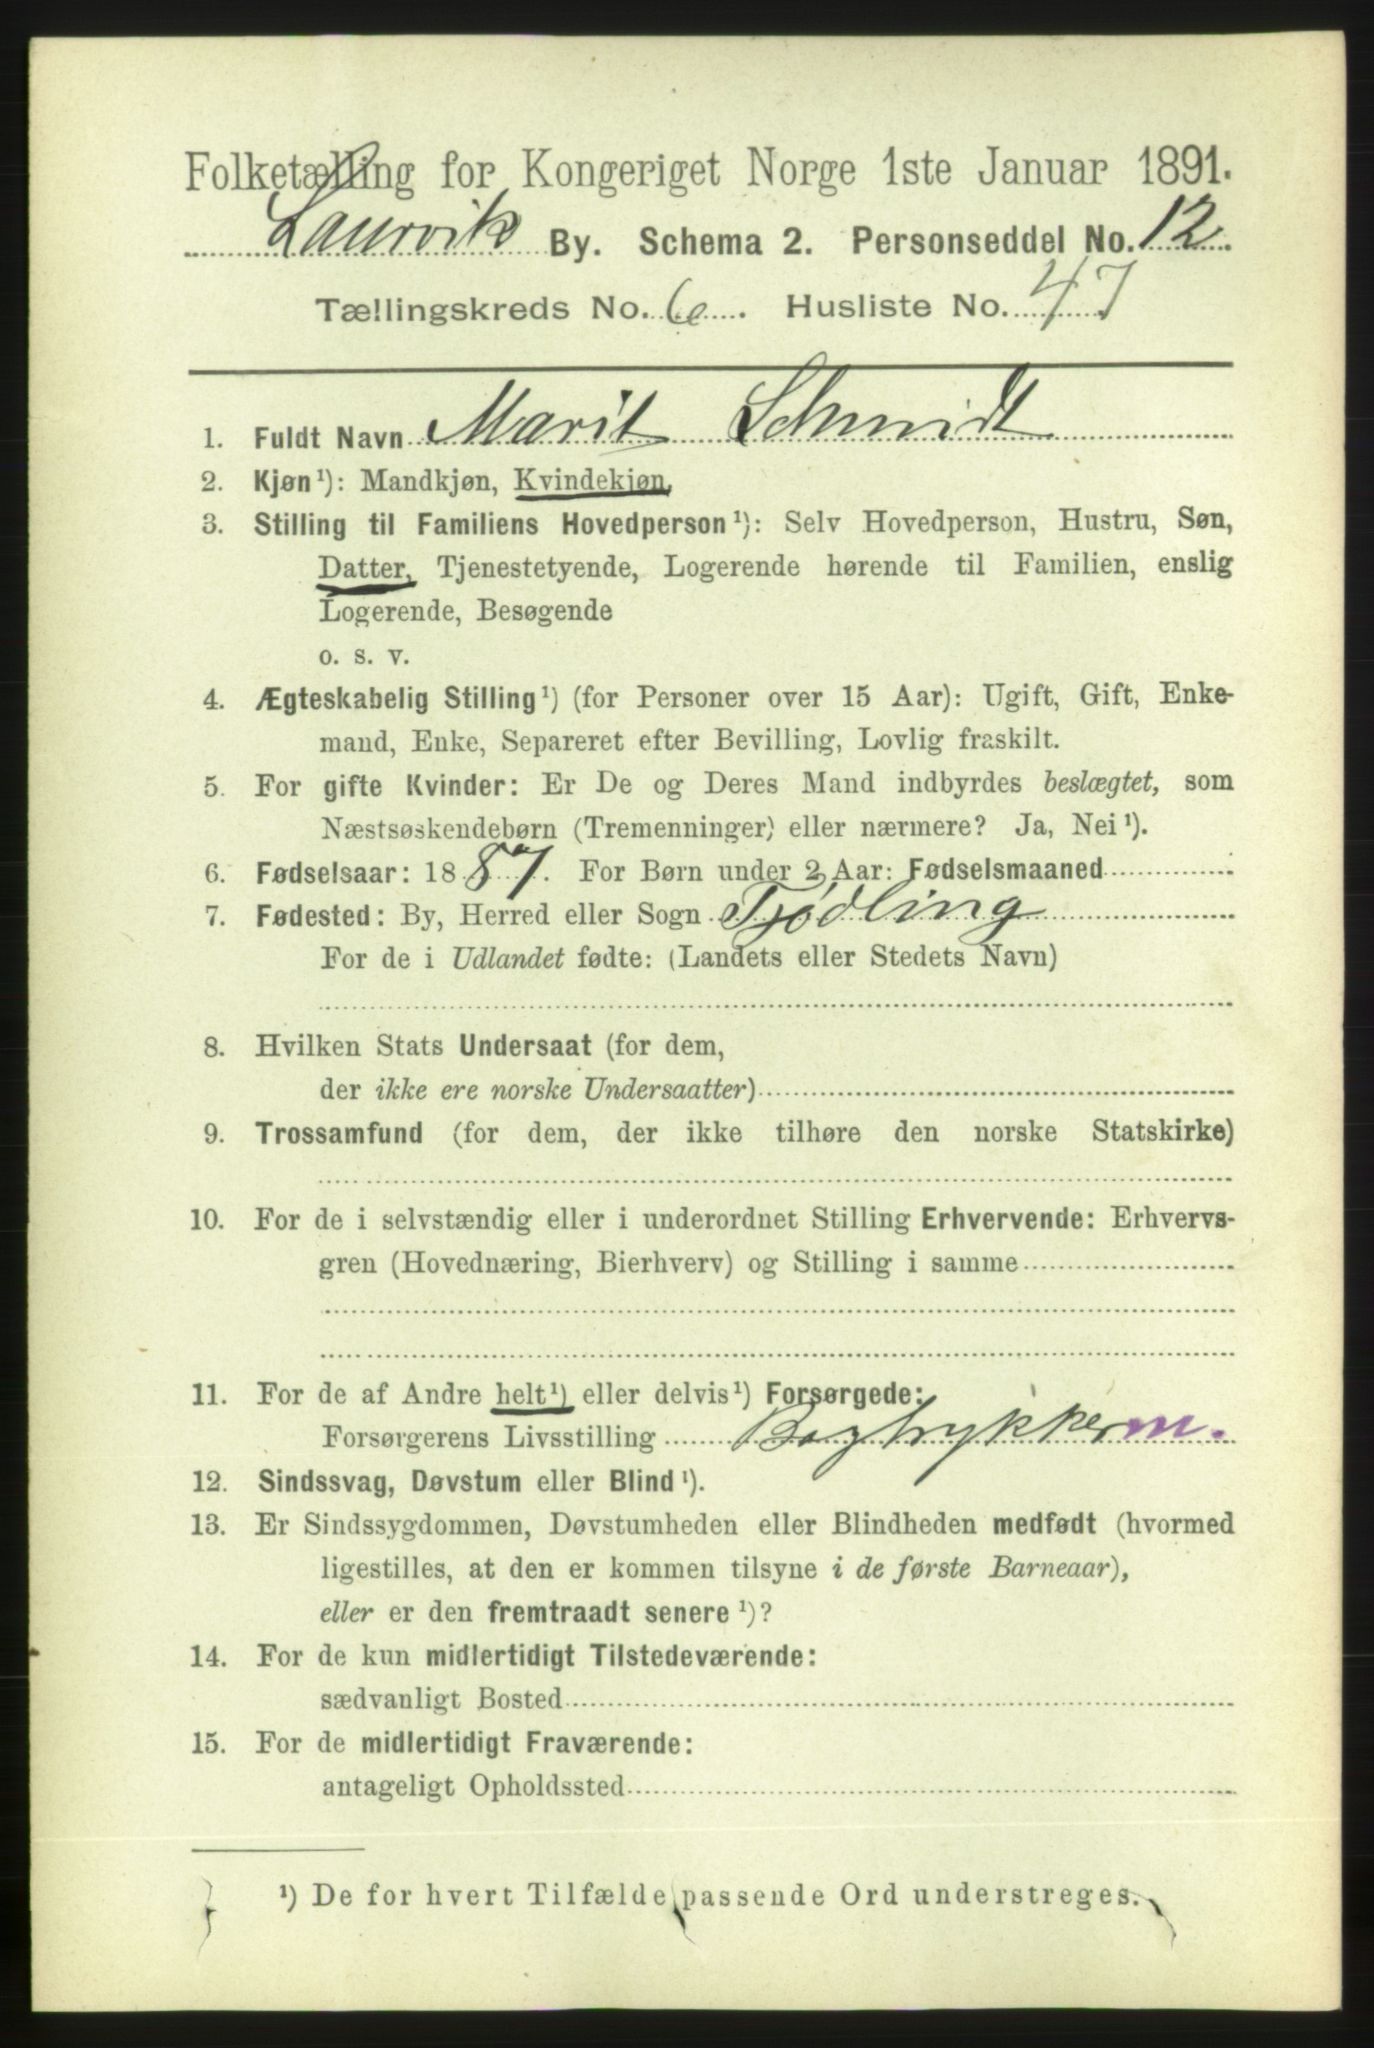 Folketælling for Kongeriget Norge 1ste Januar 1891.
Laurvik By. Schema 2. Personseddel No. 12.
Tællingskreds No. 6. Husliste No. 47
1. Fuldt Navn Marit Schmidt
2. Kjøn¹): Mandkjøn, Kvindekjøn,
3. Stilling til Familiens Hovedperson¹): Selv Hovedperson, Hustru, Søn,
Datter, Tjenestetyende, Logerende hørende til Familien, enslig
Logerende, Besøgende
o. s. v.
4. Ægteskabelig Stilling¹) (for Personer over 15 Aar): Ugift, Gift, Enke-
mand, Enke, Separeret efter Bevilling, Lovlig fraskilt.
5. For gifte Kvinder: Er De og Deres Mand indbyrdes beslægtet, som
Næstsøskendebørn (Tremenninger) eller nærmere? Ja, Nei¹).
6. Fødselsaar: 1887. For Børn under 2 Aar: Fødselsmaaned
7. Fødested: By, Herred eller Sogn Tjødling
For de i Udlandet fødte: (Landets eller Stedets Navn)
8. Hvilken Stats Undersaat (for dem,
der ikke ere norske Undersaatter)
9. Trossamfund (for dem, der ikke tilhøre den norske Statskirke)
10. For de i selvstændig eller i underordnet Stilling Erhvervende: Erhvervs-
gren (Hovednæring, Bierhverv) og Stilling i samme
11. For de af Andre helt¹) eller delvis¹) Forsørgede:
Forsørgerens Livsstilling Bogtrykker m.
12. Sindssvag, Døvstum eller Blind¹).
13. Er Sindssygdommen, Døvstumheden eller Blindheden medfødt (hvormed
ligestilles, at den er kommen tilsyne i de første Barneaar),
eller er den fremtraadt senere¹)?
14. For de kun midlertidigt Tilstedeværende:
sædvanligt Bosted
15. For de midlertidigt Fraværende:
antageligt Opholdssted
¹) De for hvert Tilfælde passende Ord understreges.